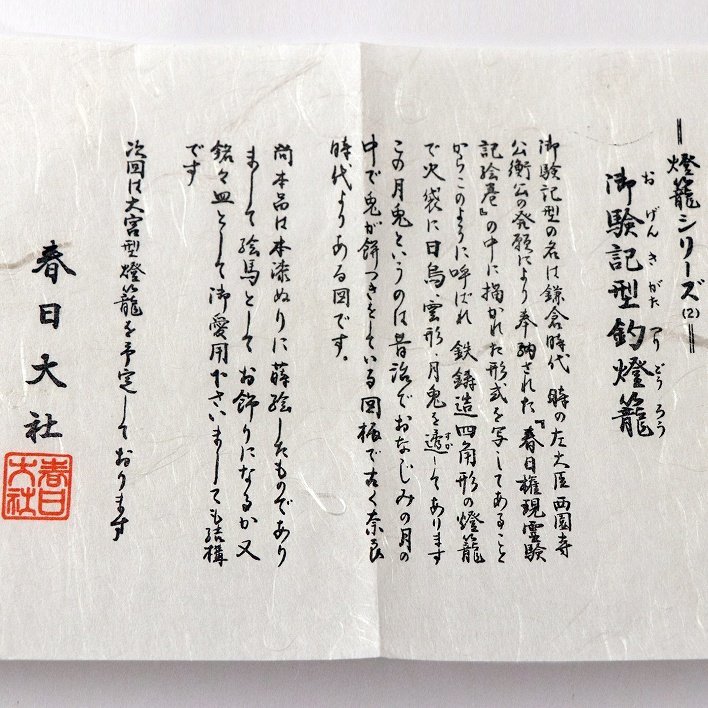 ＝燈籠シリーズ(2)＝
御験記型釣燈籠
おげんきがたつりどうろう
御験記型の名は鎌倉時代 時の左大臣 西園寺
公衡公の発願により奉納された『春日権現霊験
記絵巻』の中に描かれた形式を写してあること
からこのように呼ばれ 鉄鋳造四角形の燈籠
で火袋に日烏、雲形、月兎を透してあります
すか
この月兎というのは昔話でおなじみの月の
中で兎が餅つきをしている図柄で古く奈良
時代よりある図です。
尚本品は本漆ぬりに蒔絵したものであり
まして絵馬としてお飾りになるか又
銘々皿として御愛用下さいましても結構
です
次回は大宮型燈籠を予定しております
春日大社
春日
大社